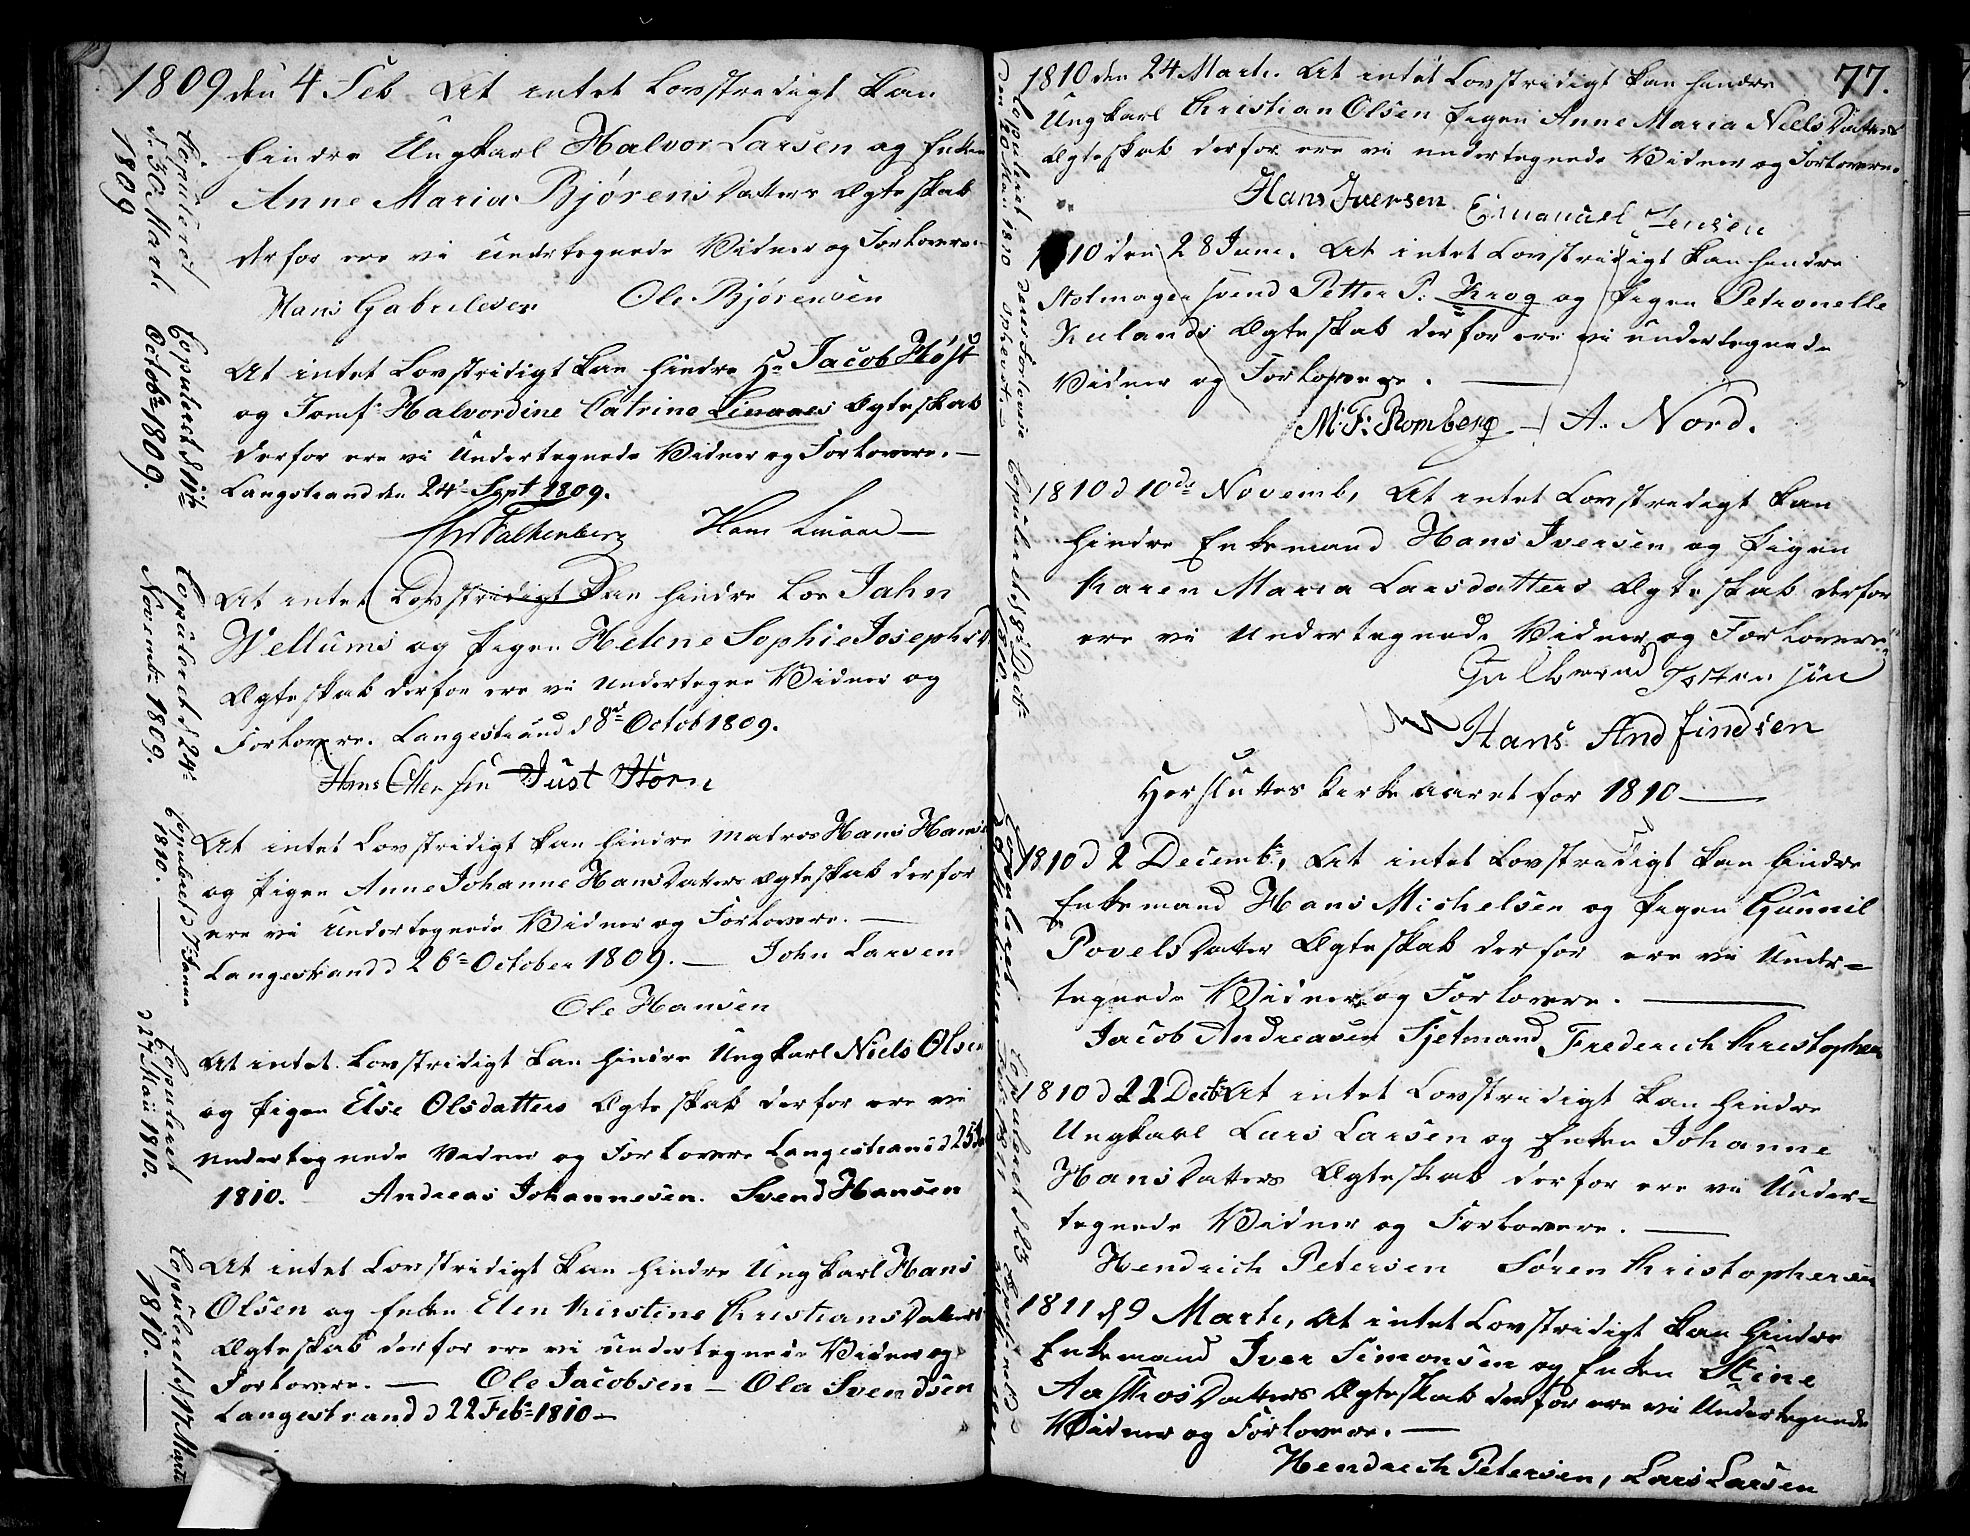 1809 den 4 Feb. At intet Lovstridigt kan
hindre Ungkarl Halvor Larsen og Enken
Anne Maria Bjørensdatters Ægteskab
derfor ere vi undertegnede Vidner og Forlovere
Hans Gabrielsen Ole Bjørensen
Copuleret
d. 30 Marti
1809
At intet Lovstridigt kan hindre Hr Jacob Høst
og Jomf: Halvordine Catrine Linaaes Ægteskab
derfor ere vi Undertegnede Vidner og Forlovere. —
Langestrand den 24de Sept 1809.
Chr Falkenberg Hans Linaae —
Copulert d 11te
Octobr 1809.
At intet Lovstridigt kan hindre Los Jahn
Wellums og Pigen Helene Sophie Josephsd
Ægteskab derfor ere vi undertegne Vidner og
Forlovere. Langestrand d 8de Octob 1809.
Hans Ellensen Just Horn
Copulert d 24de
Novembr 1809.
At intet Lovstridigt kan hindre Matros Hans Hansen
og Pigen Anne Johanne Hansdatters Ægteskab derfor
ere vi Undertegnede Vidner og Forlovere. —
Langestrand d 26de October 1809. — John Larsen
Ole Hansen
Copuleret d 7 Janua
1810. —
At intet Lovstridigt kan hindre Ungkarl Niels Olsen
og Pigen Else Olsdatters Ægteskab derfor ere vi
undertegnede Vidner og Forlovere Langestrand d 25
1810. Andreas Johannesen. Svend Hansen
Copuleret
d 27 Maii 1810.
At intet Lovstridigt kan hindre Ungkarl Hans
Olsen og Enken Elen Kirstine Christiansdatters
Ægteskab derfor ere vi undertegnede Vidner og
Forlovere. — Ole Jacobsen — Ola Svendsen
Langestrand d 22 Febr 1810 —
Copulert d 17 Marti
1810. —
77.
1810 den 24 Marti. At intet Lovstridigt kan hindre
Ungkarl Christian Olsen Pigen Anne Maria Nielsdatters
Ægteskab derfor ere vi undertegnede Vidner og Forlovere.
Hans Iversen Emanuel Jensen
1810 den 28 Juni. At intet Lovstridigt kan hindre
Stolmager svend Petter P: Krog og Pigen Petronelle
Rulands Ægteskab derfor ere vi undertegnede
Vidner og Forlovere. —
M: F: Romberg — A. Nord.
1810 d 10de Novemb, At intet Lovstridigt kan
hindre Enkemand Hans Iversen og Pigen
Karen Maria Larsdatters Ægteskab derfor
ere vi Undertegnede Vidner og Forlovere
Tostensen
Hans And Findsen
Her sluttes Kirke aaret for 1810 —
1810 d 2 Decembr, At intet Lovstridigt kan hindre
Enkemand Hans Michelsen og Pigen Gunnil
Povelsdatter Ægteskab derfor ere vi Under=
tegnede Vidner og Forlovere. —
Jacob Andreasen Fjelmand Frederich Christophersen
1810 d 22 Decbr At intet Lovstridigt kan hindre
Ungkarl Lars Larsen og Enken Johanne
Hansdatters Ægteskab derfor ere vi Under=
tegnede Vidner og Forlovere. —
Hendrich Petersen Søren Christophersen
1811 d 9 Marti, At intet Lovstridigt kan hindre
Enkemand Iver Simonsen og Enken Stine
Ægteskab derfor ere vi Undertegnede
Vidner og Forlovere. —
Hendrich Petersen, Lars Larsen